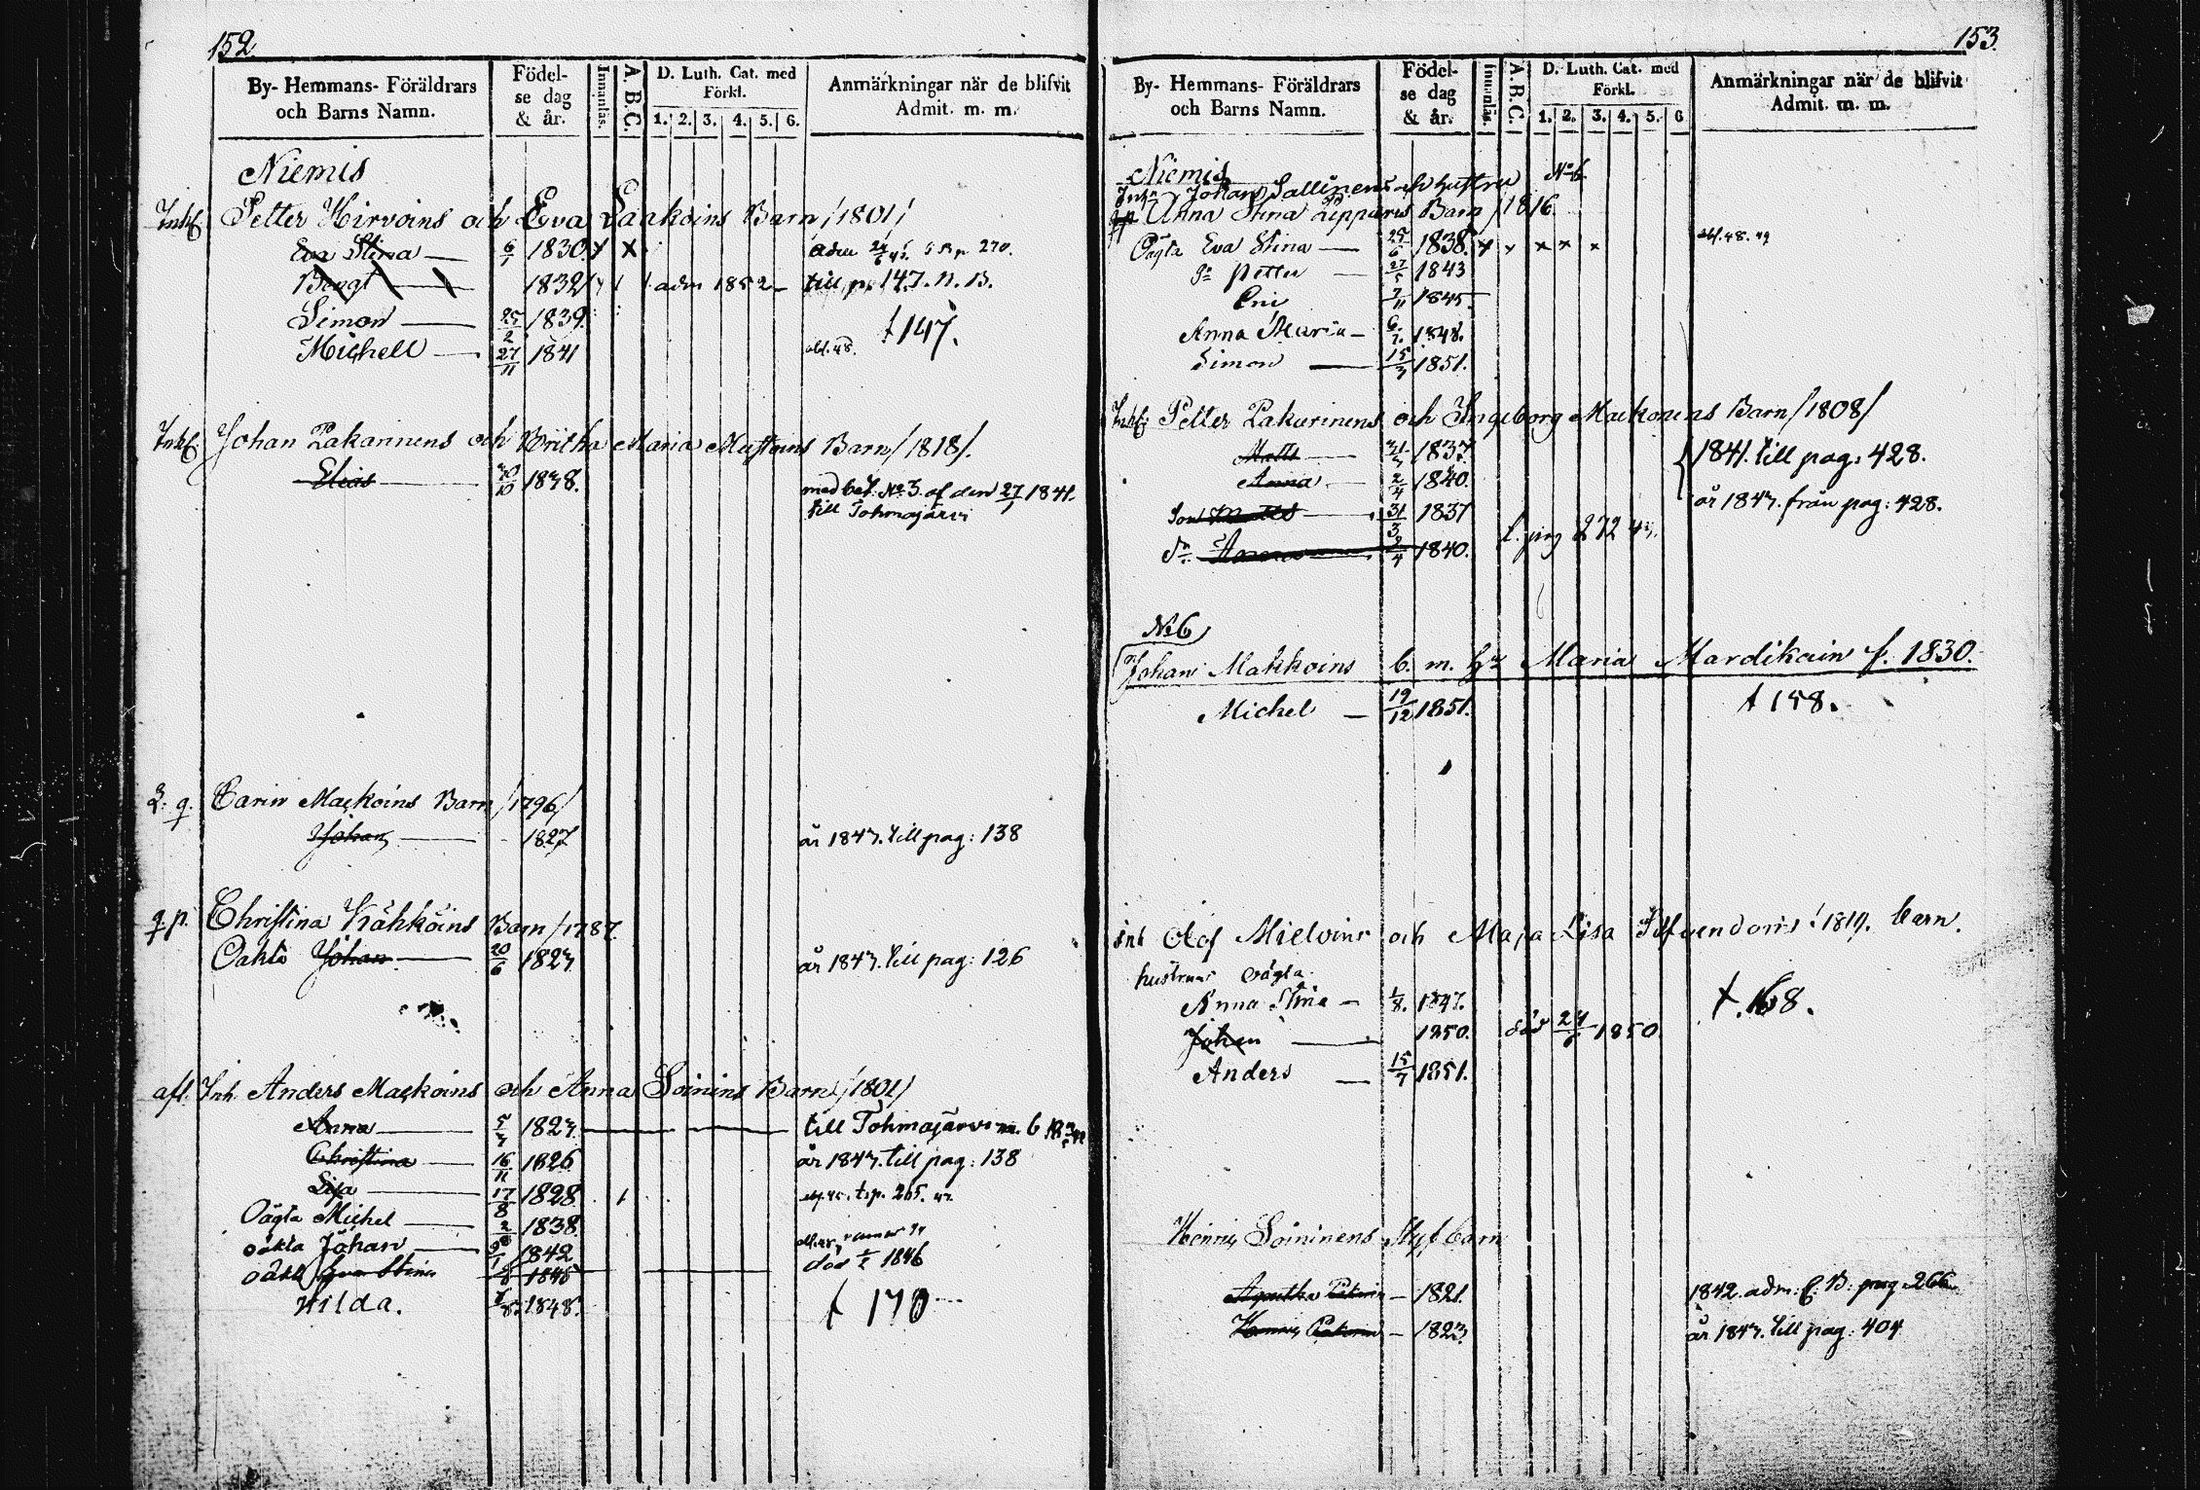 152
By- Hemmans- Föräldrars och Barns Namn.
Födelse dag & år.
Innanläs.
A.B.C.
D. Luth. Cat. med Förkl.
1. 2. 3. 4. 5. 6.
Anmärkningar när de blifvit Admit. m. m.
Niemis
Petter Hirvoins och Eva Laakoins Barn /1801/
Eva Stina 6/1 1830. x x
Bengt 1832 adm 1852 - till p. 147. N. B.
Simon 25/2 1839. t 147.
Michell 27/11 1841 abs. 48.
Johan Pakarinens och Britha Maria Mustoins Barn /1818/.
Elias 30/10 1838. med bet. No 3. af den 27/7 1841.
till Tohmajärvi
Carin Mackoins Barn /1796/
Johan 1827 år 1843. till pag: 138
q.p. Christina Kähköins Barn /1787
Oäkta Johan 20/6 1823 år 1843. till pag: 126
Inh. Anders Mackoins och Anna Soinins Barn /1801/
Anna 5/7 1823. till Tohmajärvi
Christina 16/11 1826 år 1843. till pag: 138
Lisa 17/8 1828 t.p. 265.
Oägta Michel 1838.
oäkta Johan 1842
oäkta Eva Stina 1845 död 1846
Hilda. 1848. t 170
153
By- Hemmans- Föräldrars och Barns Namn.
Födelse dag & år.
Innanläs.
A.B.C.
D. Luth. Cat. med Förkl.
1. 2. 3. 4. 5. 6
Anmärkningar när de blifvit Admit. m. m.
Niemis No 6.
Johan Sallinens och hustru
Anna Stina Lipparis Barn /1816.
Oägta Eva Stina 25/6 1838. x x x x x abs. 48. 49
Petter 27/5 1843
7/11 1845
Anna Maria 1848.
Simon 15/7 1851.
Petter Pakarinens och Ingeborg Mackonens Barn /1808/
Matts 31/3 1837 1841. till pag: 428.
Anna 2/4 1840.
Son Matts 31/3 1837 år 1843. från pag: 428.
1840. t. pag 272
No 6
Johan Makkoins b. m. Maria Mardikain f. 1830.
Michel 19/12 1851. t 158.
Olof Mielvins och Maja Lisa barn.
hustruns oägta
Anna Stina 1/8. 1847. t. 168.
Johan 1850. död 1850.
Anders 15/7 1851.
Henric Soininens Styfbarn
Agatha 1821. 1842. adm: C. B. pag 266
Henric 1823. år 1843. till pag: 404